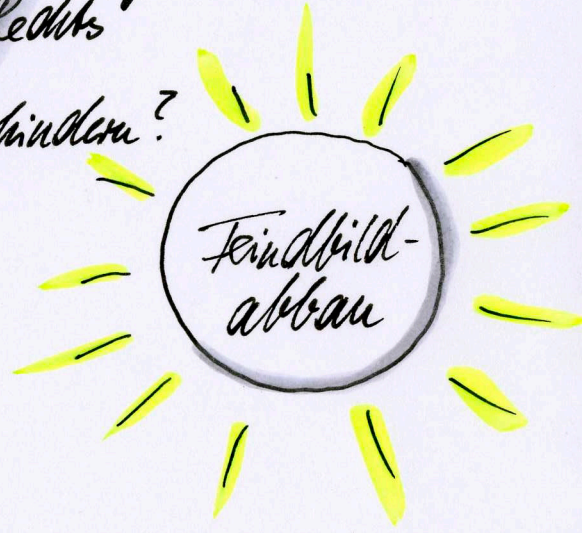 echts"
hindern?
Feindbild-
abbau